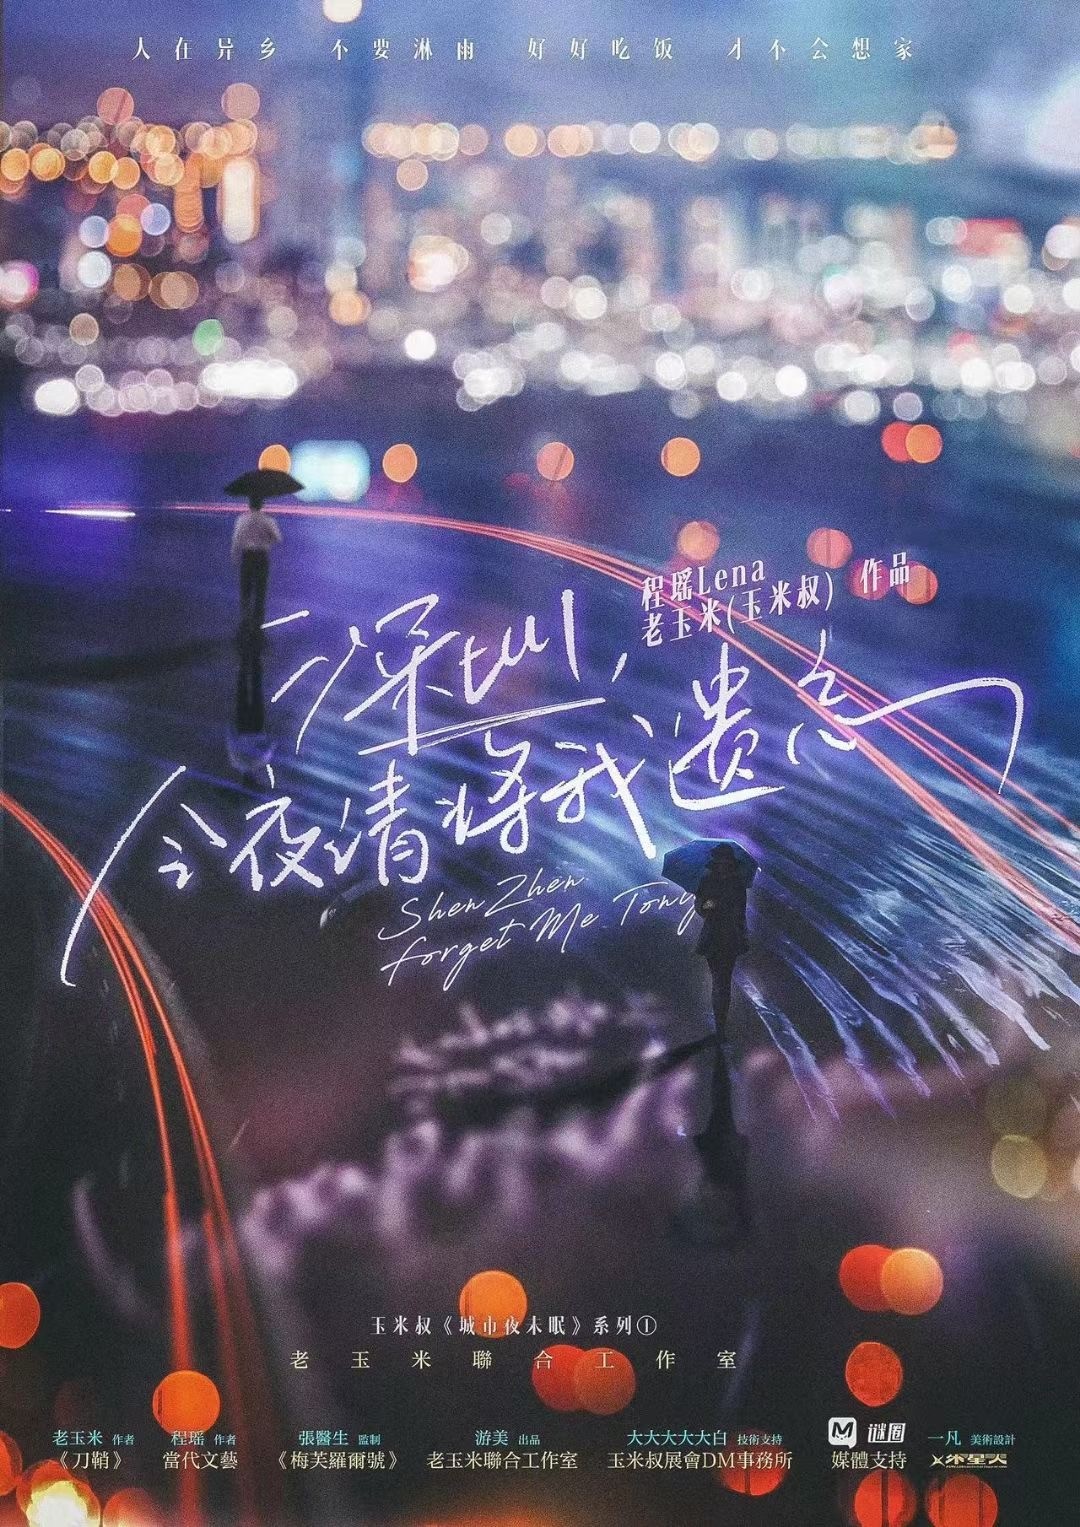 人在异乡 不要淋雨 好好吃饭 才不会想家
程瑶Lena
老玉米(玉米叔) 作品
深圳,
今夜请将我遗忘
ShenZhen
Forget Me Tony
玉米叔《城市夜未眠》系列①
老玉米聯合工作室
老玉米 作者
《刀鞘》
程瑶 作者
當代文藝
張醫生 監制
《梅芙羅爾號》
游美 出品
老玉米聯合工作室
大大大大大白 技術支持
玉米叔展會DM事務所
M 谜圈
媒體支持
一凡 美術設計